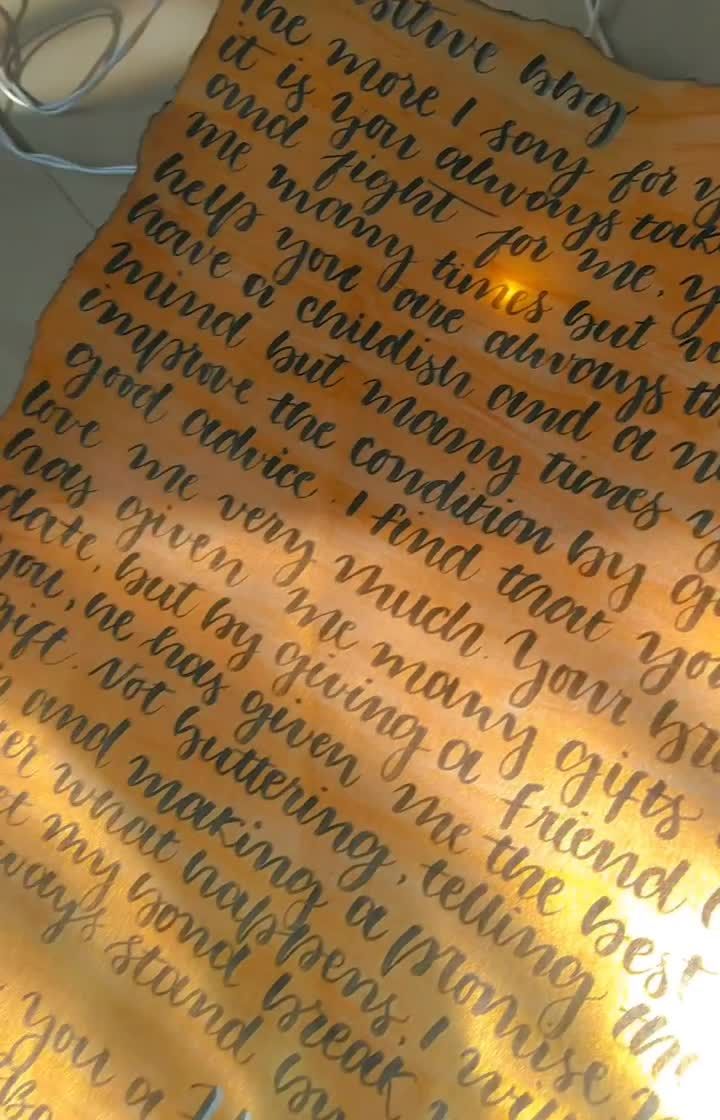 bbg
the more I say for
it is you always
and fight for me.
me many times but
help you are always
have a childish and a
mind but many times
improve the condition by
good advice. I find that
love me very much. your
has given me many gifts
date, but by giving a friend
you, he has given me the best
gift. Not buttering, telling
and making a promise
what happens, I
my bond break
stand by
you a